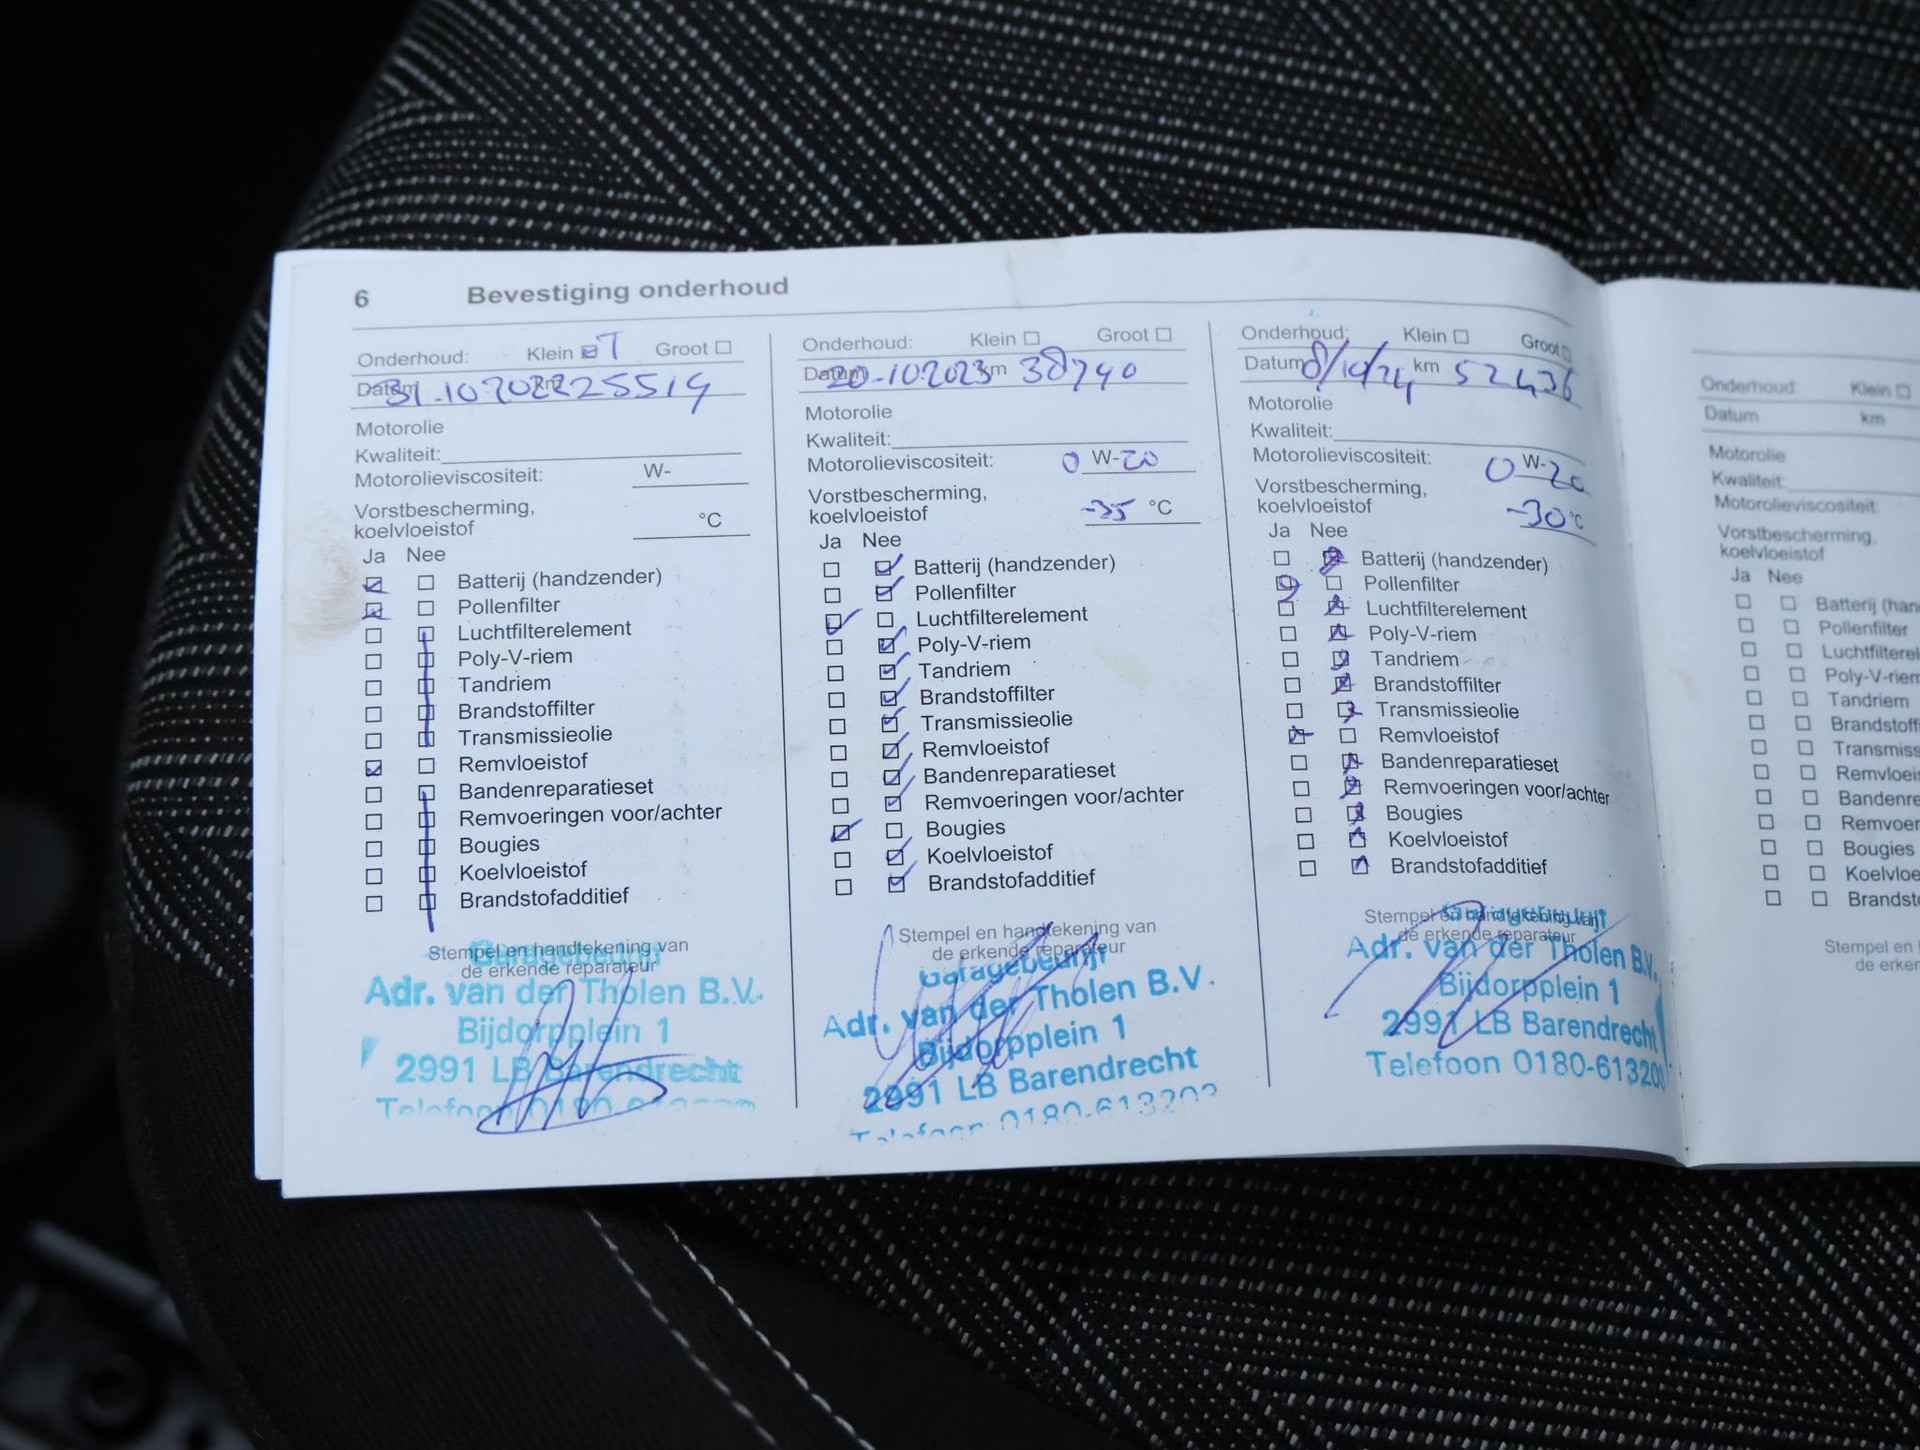 6 Bevestiging onderhoud
Onderhoud: Klein Groot
Datum 31-10-2022 km 25519
Motorolie
Kwaliteit:
Motorolieviscositeit: W-
Vorstbescherming,
koelvloeistof °C
Ja Nee
Batterij (handzender)
Pollenfilter
Luchtfilterelement
Poly-V-riem
Tandriem
Brandstoffilter
Transmissieolie
Remvloeistof
Bandenreparatieset
Remvoeringen voor/achter
Bougies
Koelvloeistof
Brandstofadditief
Stempel en handtekening van
de erkende reparateur
Garagebedrijf
Adr. van der Tholen B.V.
Bijdorpplein 1
2991 LB Barendrecht
Telefoon 0180
Onderhoud: Klein Groot
Datum 20-10-2023 km 38740
Motorolie
Kwaliteit:
Motorolieviscositeit: 0 W-20
Vorstbescherming,
koelvloeistof -35 °C
Ja Nee
Batterij (handzender)
Pollenfilter
Luchtfilterelement
Poly-V-riem
Tandriem
Brandstoffilter
Transmissieolie
Remvloeistof
Bandenreparatieset
Remvoeringen voor/achter
Bougies
Koelvloeistof
Brandstofadditief
Stempel en handtekening van
de erkende reparateur
Garagebedrijf
Adr. van der Tholen B.V.
Bijdorpplein 1
2991 LB Barendrecht
Telefoon 0180-613203
Onderhoud: Klein Groot
Datum 8/10/24 km 52436
Motorolie
Kwaliteit:
Motorolieviscositeit: 0 W-20
Vorstbescherming,
koelvloeistof -30 °C
Ja Nee
Batterij (handzender)
Pollenfilter
Luchtfilterelement
Poly-V-riem
Tandriem
Brandstoffilter
Transmissieolie
Remvloeistof
Bandenreparatieset
Remvoeringen voor/achter
Bougies
Koelvloeistof
Brandstofadditief
Stempel en handtekening van
de erkende reparateur
Garagebedrijf
Adr. van der Tholen B.V.
Bijdorpplein 1
2991 LB Barendrecht
Telefoon 0180-61320
Onderhoud: Klein
Datum km
Motorolie
Kwaliteit:
Motorolieviscositeit:
Vorstbescherming,
koelvloeistof
Ja Nee
Batterij (han
Pollenfilter
Luchtfilterel
Poly-V-riem
Tandriem
Brandstoff
Transmiss
Remvloeis
Bandenre
Remvoer
Bougies
Koelvloe
Brandst
Stempel en
de erken